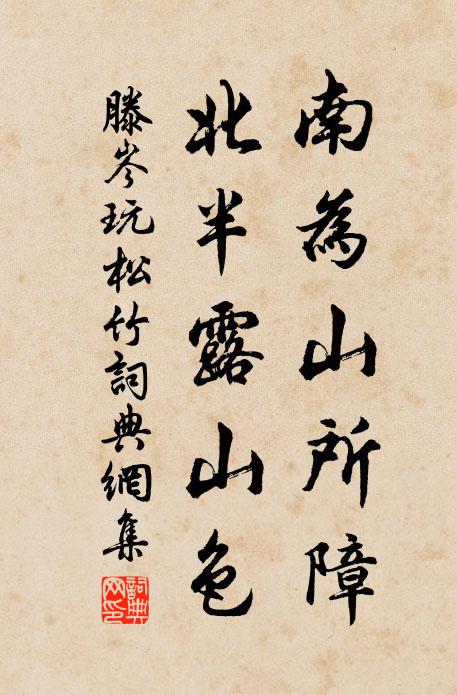 南為山所障
北半露山色
滕岑玩松竹詞典網集
詞典
网印